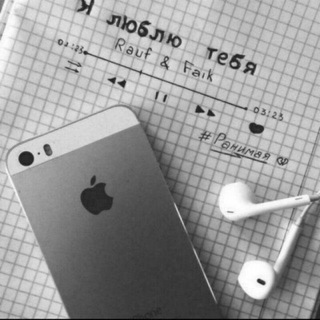 Я люблю тебя
Rauf & Faik
02:23
03:23
#Ранимая